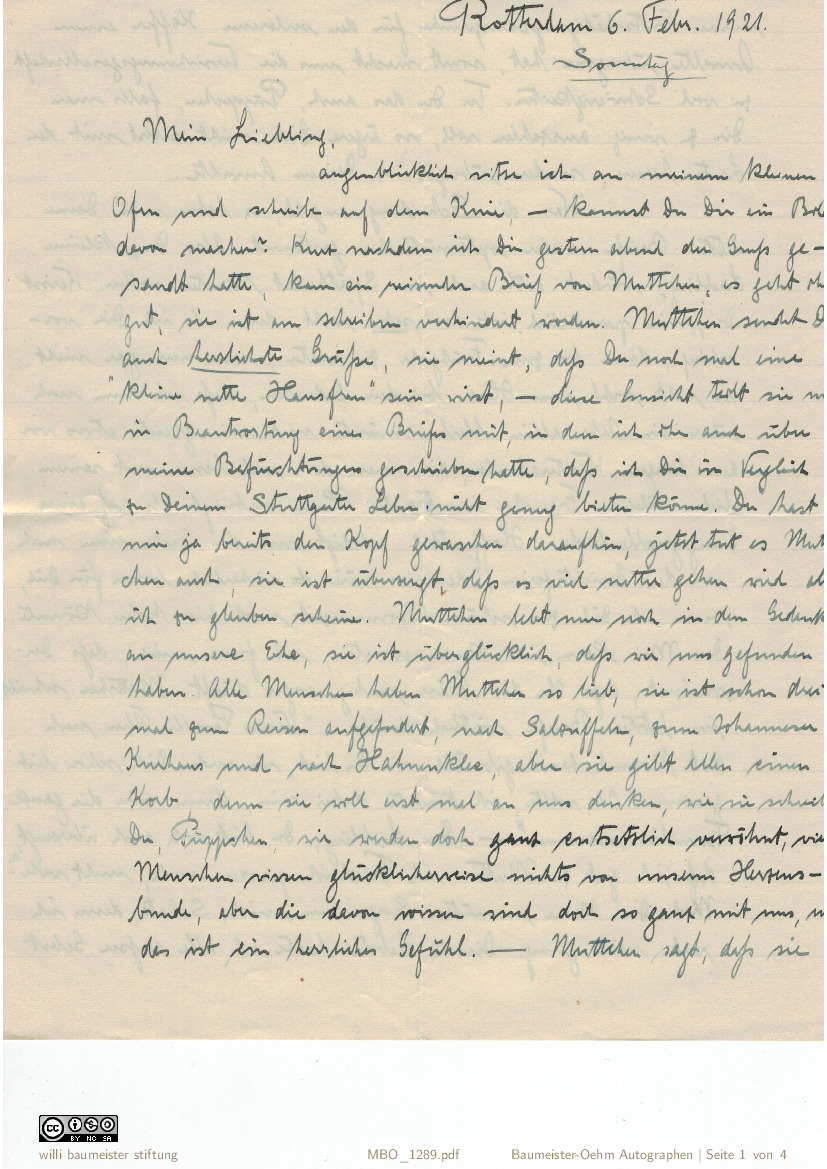 Rotterdam 6. Febr. 1921.
Sonntag
Mein Liebling,
augenblicklich sitze ich an meinem kleinen
Ofen und schreibe auf dem Knie, — kannst Du Dir ein
davon machen? Kurz nachdem ich Dir gestern abend den Gruß ge-
sandt hatte, kam ein reizender Brief von Muttchen, es geht
gut, sie ist am schreiben verhindert worden. Muttchen sendet
auch herzlichste Grüße, sie meint, daß Du noch mal eine
"kleine nette Hausfrau" sein wirst, — diese Ansicht teilt sie
in Beantwortung eines Briefes mit, in dem ich ihr auch über
meine Befürchtungen geschrieben hatte, daß ich Dir im Vergleich
zu Deinem Stuttgarter Leben nicht genug bieten könne. Du hast
mir ja bereits den Kopf gewaschen daraufhin, jetzt tut es Mutt-
chen auch, sie ist überzeugt, daß es viel netter gehen wird
ich zu glauben scheine. Muttchen lebt nur noch in dem
an unsere Ehe, sie ist überglücklich, daß wir uns gefunden
haben. Alle Menschen haben Muttchen so lieb, sie ist schon drei-
mal zum Reisen aufgefordert, nach Salzuffeln, zum Johanneser
Kurhaus und nach Hahnenklee, aber sie gibt allen einen
Korb, denn sie will erst mal an uns denken, wie sie schreibt
Du, Püppchen, wir werden doch ganz entsetzlich verwöhnt,
Menschen wissen glücklicherweise nichts von unserm Herzens-
bunde, aber die davon wissen sind doch so ganz mit uns,
das ist ein herrliches Gefühl. — Muttchen sagt, daß sie
BY NC SA
willi baumeister stiftung
MBO_1289.pdf
Baumeister-Oehm Autographen | Seite 1 von 4